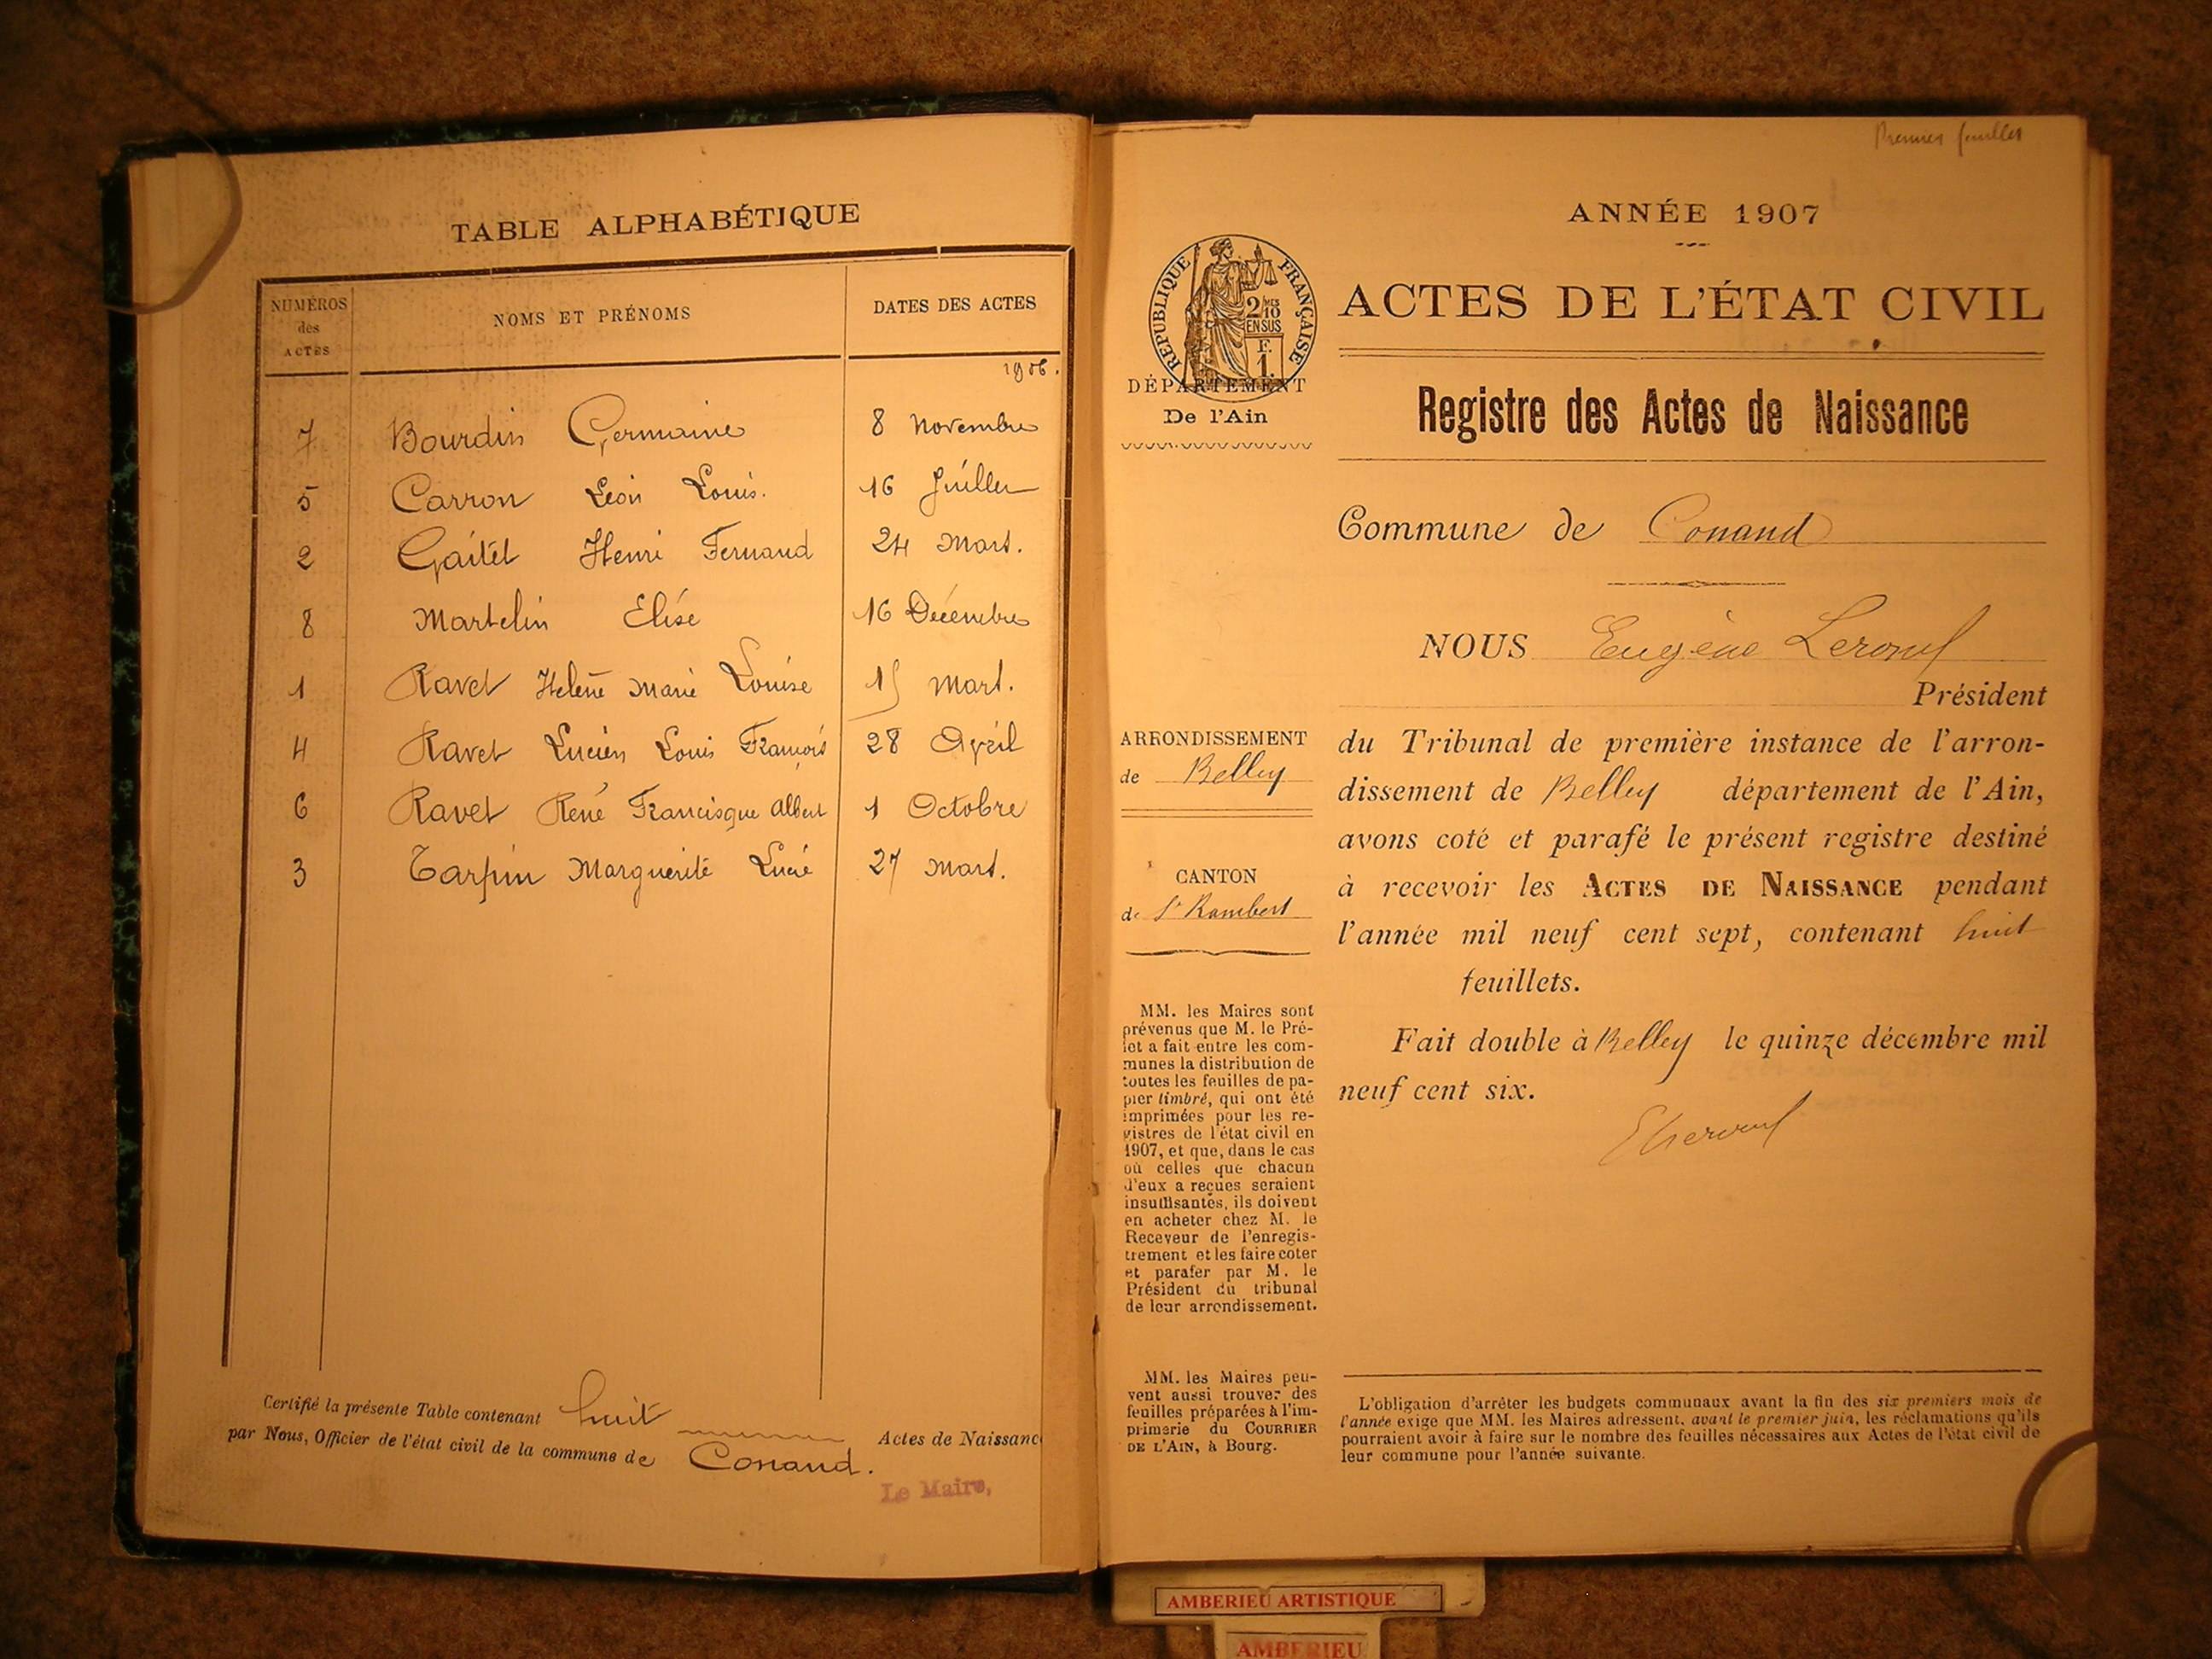 TABLE ALPHABÉTIQUE
NUMÉROS des ACTES NOMS ET PRÉNOMS DATES DES ACTES
1906.
7 Bourdin Germaine 8 Novembre
5 Carron Léon Louis. 16 Juillet
2 Gaitet Henri Fernand 24 Mars.
8 Martelin Elise 16 Décembre
1 Ravet Helène Marie Louise 15 Mars.
4 Ravet Lucien Louis François 28 Avril
6 Ravet René Francisque Albert 1 Octobre
3 Tarpin Marguerite Lucie 27 Mars.
Certifié la présente Table contenant huit Actes de Naissanc
par Nous, Officier de l'état civil de la commune de Conand.
Le Maire,
Premier feuillet
ANNÉE 1907
RÉPUBLIQUE FRANÇAISE
2/MES 10
EN SUS
F.
1.
ACTES DE L'ÉTAT CIVIL
DÉPARTEMENT
De l'Ain
Registre des Actes de Naissance
Commune de Conand
NOUS Eugène
Président
ARRONDISSEMENT
de Belley
du Tribunal de première instance de l'arron-
dissement de Belley département de l'Ain,
avons coté et parafé le présent registre destiné
à recevoir les ACTES DE NAISSANCE pendant
l'année mil neuf cent sept, contenant huit
feuillets.
Fait double à Belley le quinze décembre mil
neuf cent six.
CANTON
de St Rambert
MM. les Maires sont
prévenus que M. le Pré-
fet a fait entre les com-
munes la distribution de
toutes les feuilles de pa-
pier timbré, qui ont été
imprimées pour les re-
gistres de l'état civil en
1907, et que, dans le cas
où celles que chacun
d'eux a reçues seraient
insuffisantes, ils doivent
en acheter chez M. le
Receveur de l'enregis-
trement et les faire coter
et parafer par M. le
Président du tribunal
de leur arrondissement.
MM. les Maires peu-
vent aussi trouver des
feuilles préparées à l'im-
primerie du COURRIER
DE L'AIN, à Bourg.
L'obligation d'arrêter les budgets communaux avant la fin des six premiers mois de
l'année exige que MM. les Maires adressent, avant le premier juin, les réclamations qu'ils
pourraient avoir à faire sur le nombre des feuilles nécessaires aux Actes de l'état civil de
leur commune pour l'année suivante.
AMBERIEU ARTISTIQUE
AMBERIEU